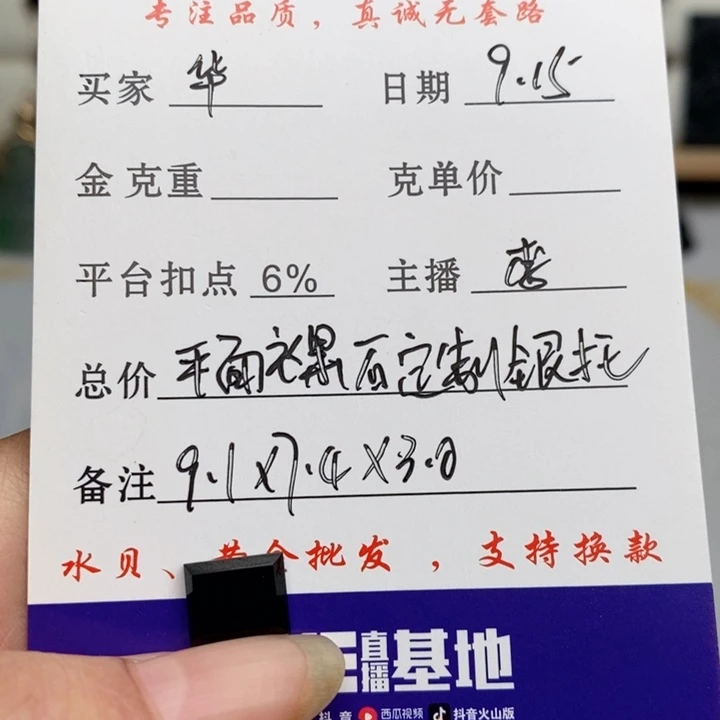 专注品质，真诚无套路
买家 华 日期 9.15
金克重 克单价
平台扣点 6% 主播
总价 平面衣黑石定制银托
备注 9.1X7.4X3.0
水贝、黄金批发，支持换款
直播基地
抖音 西瓜视频 抖音火山版